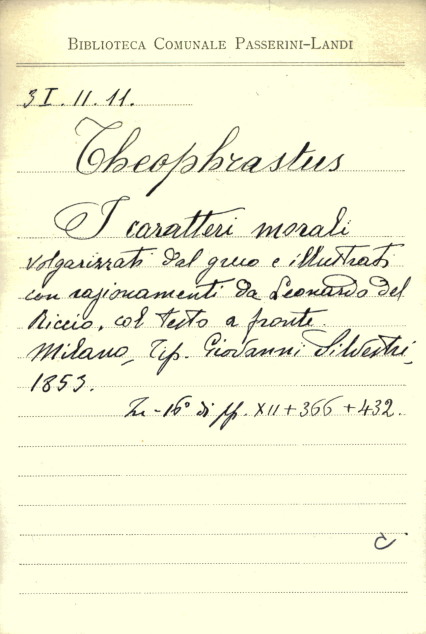 BIBLIOTECA COMUNALE PASSERINI-LANDI
3I.II.11.
Theophrastus
I caratteri morali
volgarizzati dal greco e illustrati
con ragionamenti da Leonardo del
Riccio, col testo a fronte.
Milano, Tip. Giovanni Silvestri,
1853.
In-16° di pp. XII+366+432.
C